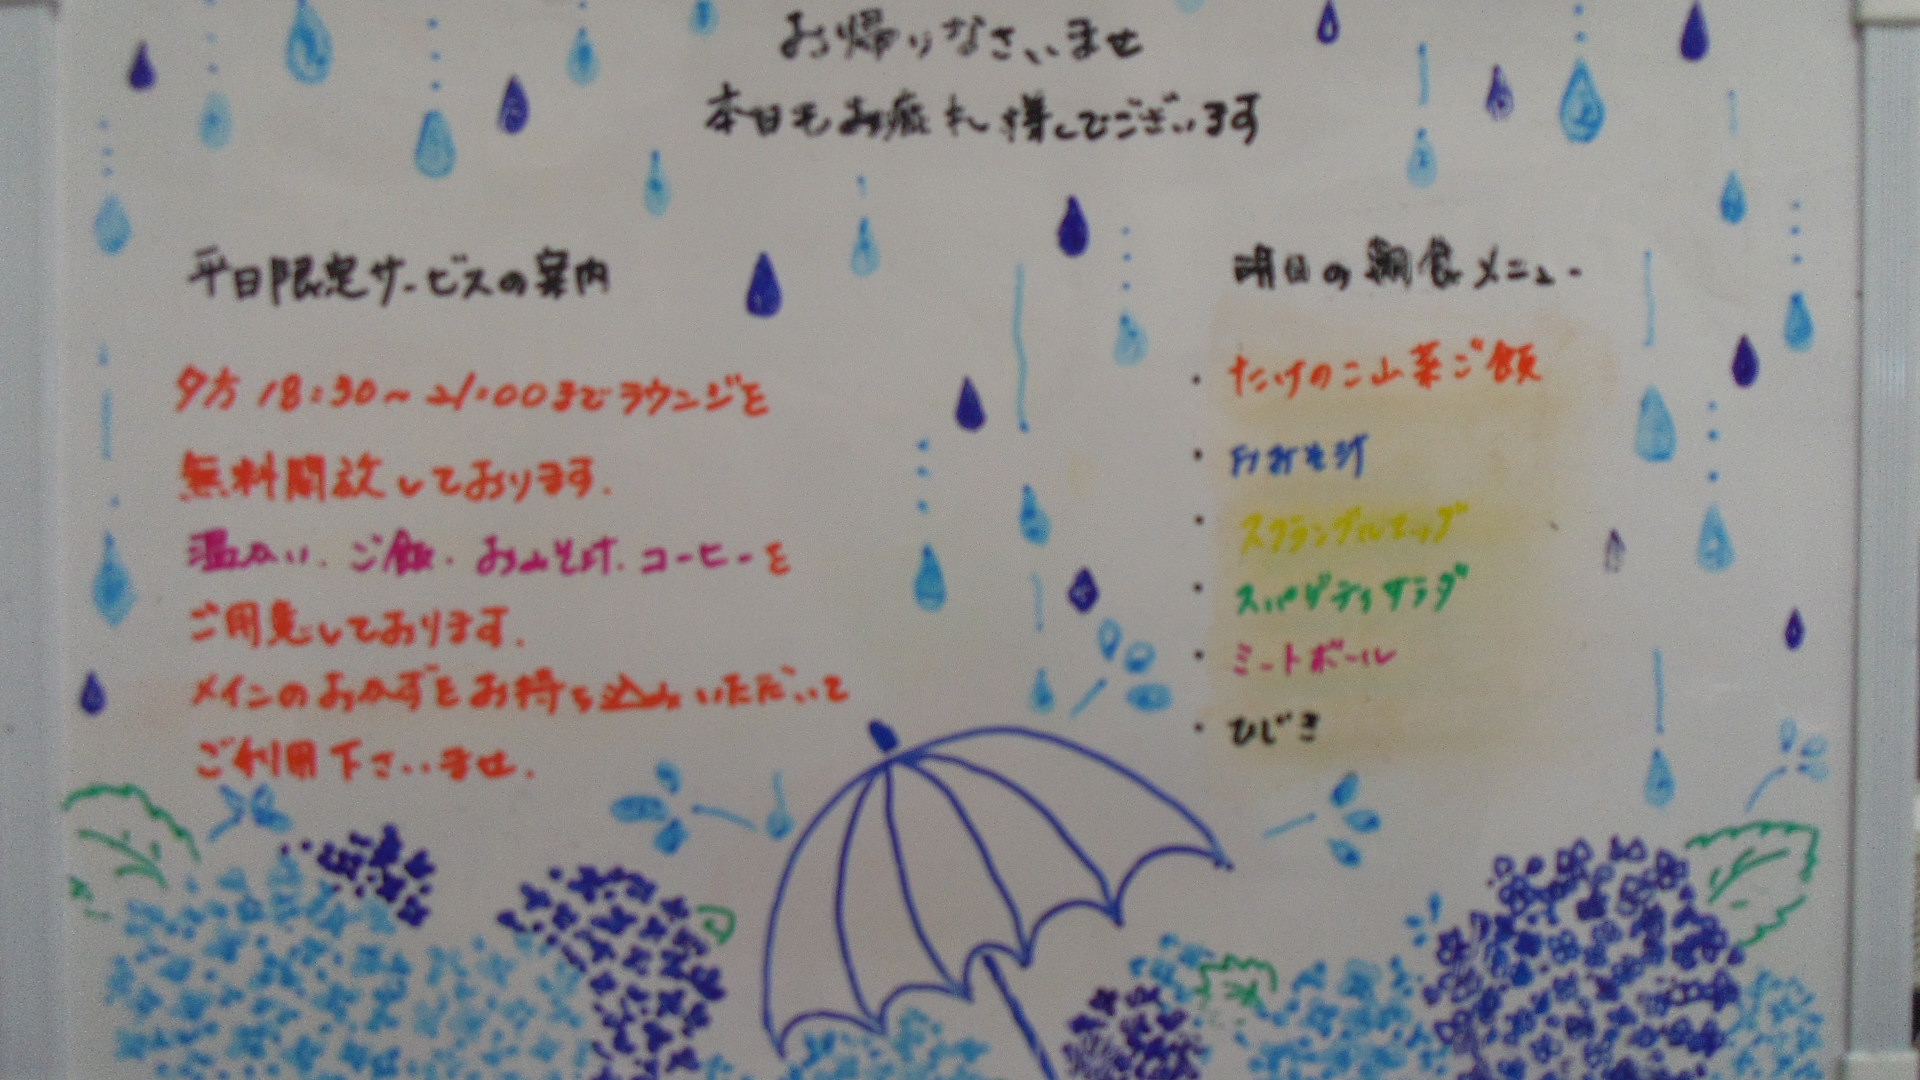 お帰りなさいませ
本日もお疲れ様でございます
平日限定サービスの案内
夕方18:30～21:00までラウンジを
無料開放しております.
温かい.ご飯.おみそ汁.コーヒーを
ご用意しております.
メインのおかずをお持ち込みいただいて
ご利用下さいませ.
明日の朝食メニュー
・たけのこ山菜ご飯
・おみそ汁
・スクランブルエッグ
・スパゲティサラダ
・ミートボール
・ひじき